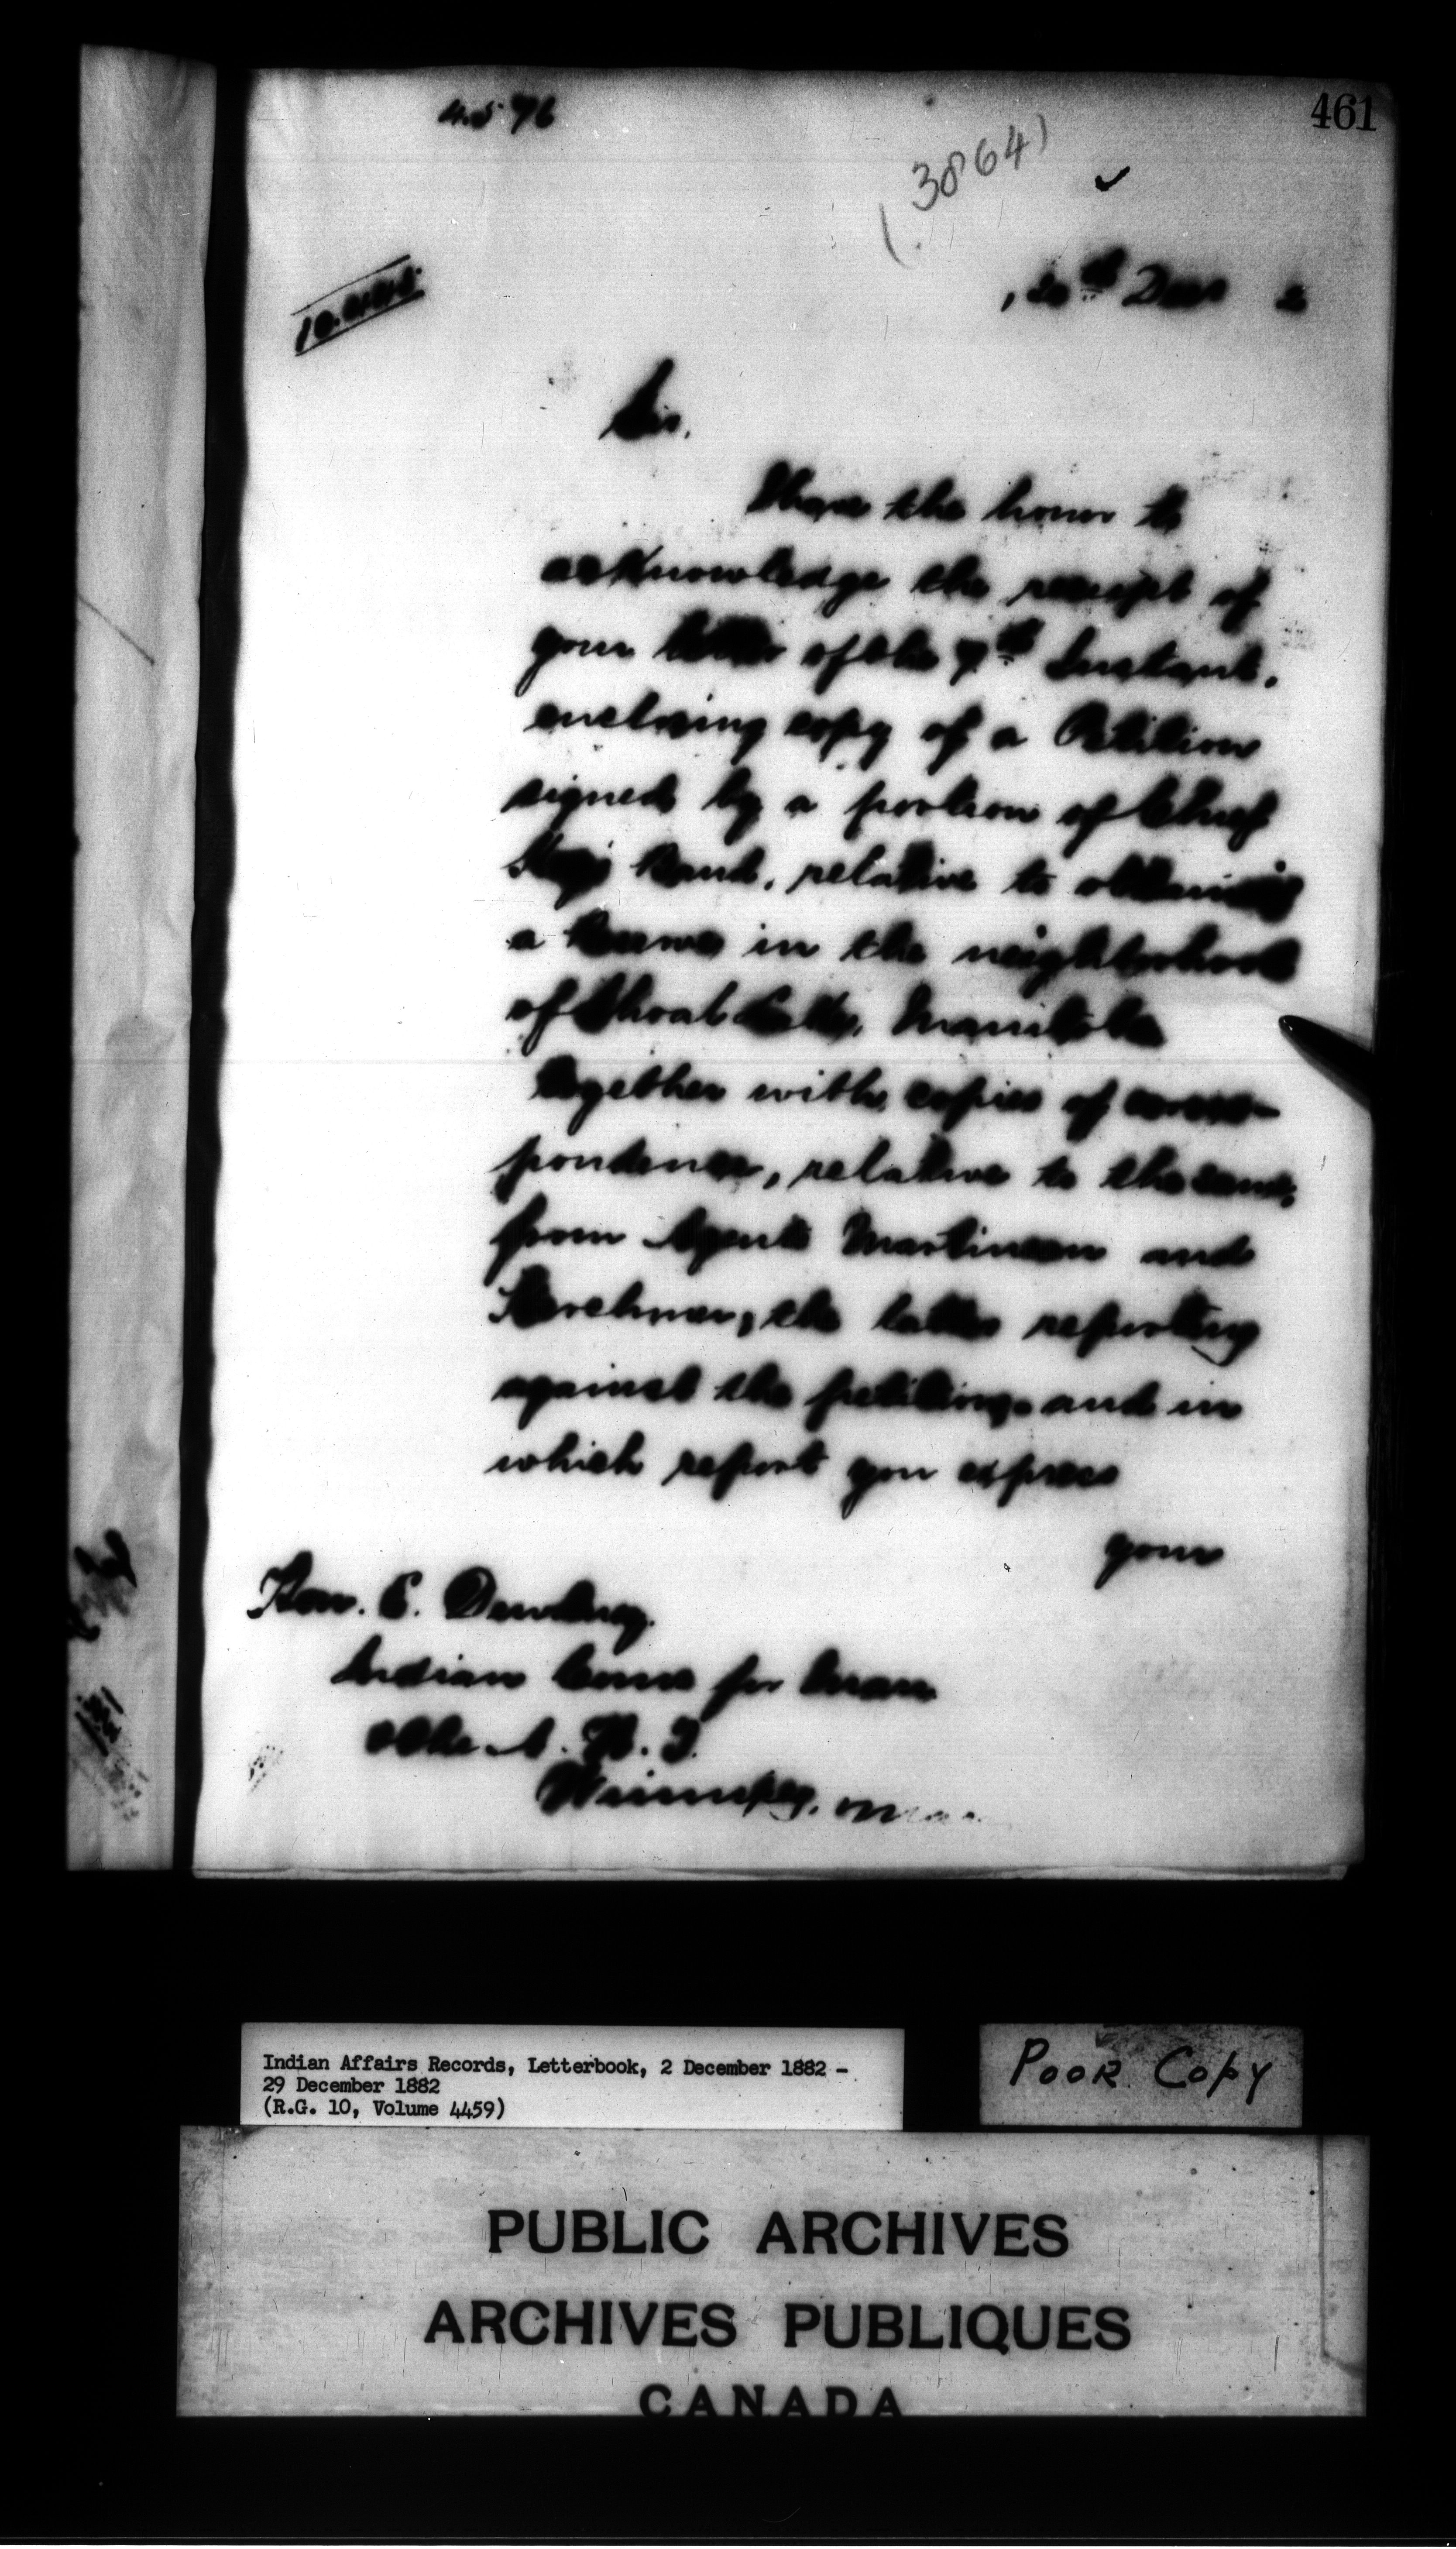 461
(3864)
, 20th Decr 2
Sir,
I have the honor to
acknowledge the receipt of
your letter of the 7th Instant,
enclosing copy of a Petition
signed by a portion of Chief
Key's Band, relative to obtaining
a Reserve in the neighborhood
of Shoal Lake, Manitoba
together with copies of corres-
pondence, relative to the same,
from Agents Martineau and
Herchmer, the latter reporting
against the petition, and in
which report you express
your
Hon. E. Dewdney,
Indian Comr for Man
& the N. W. T.
Winnipeg, Man
Indian Affairs Records, Letterbook, 2 December 1882 -
29 December 1882
(R.G. 10, Volume 4459)
POOR COPY
PUBLIC ARCHIVES
ARCHIVES PUBLIQUES
CANADA